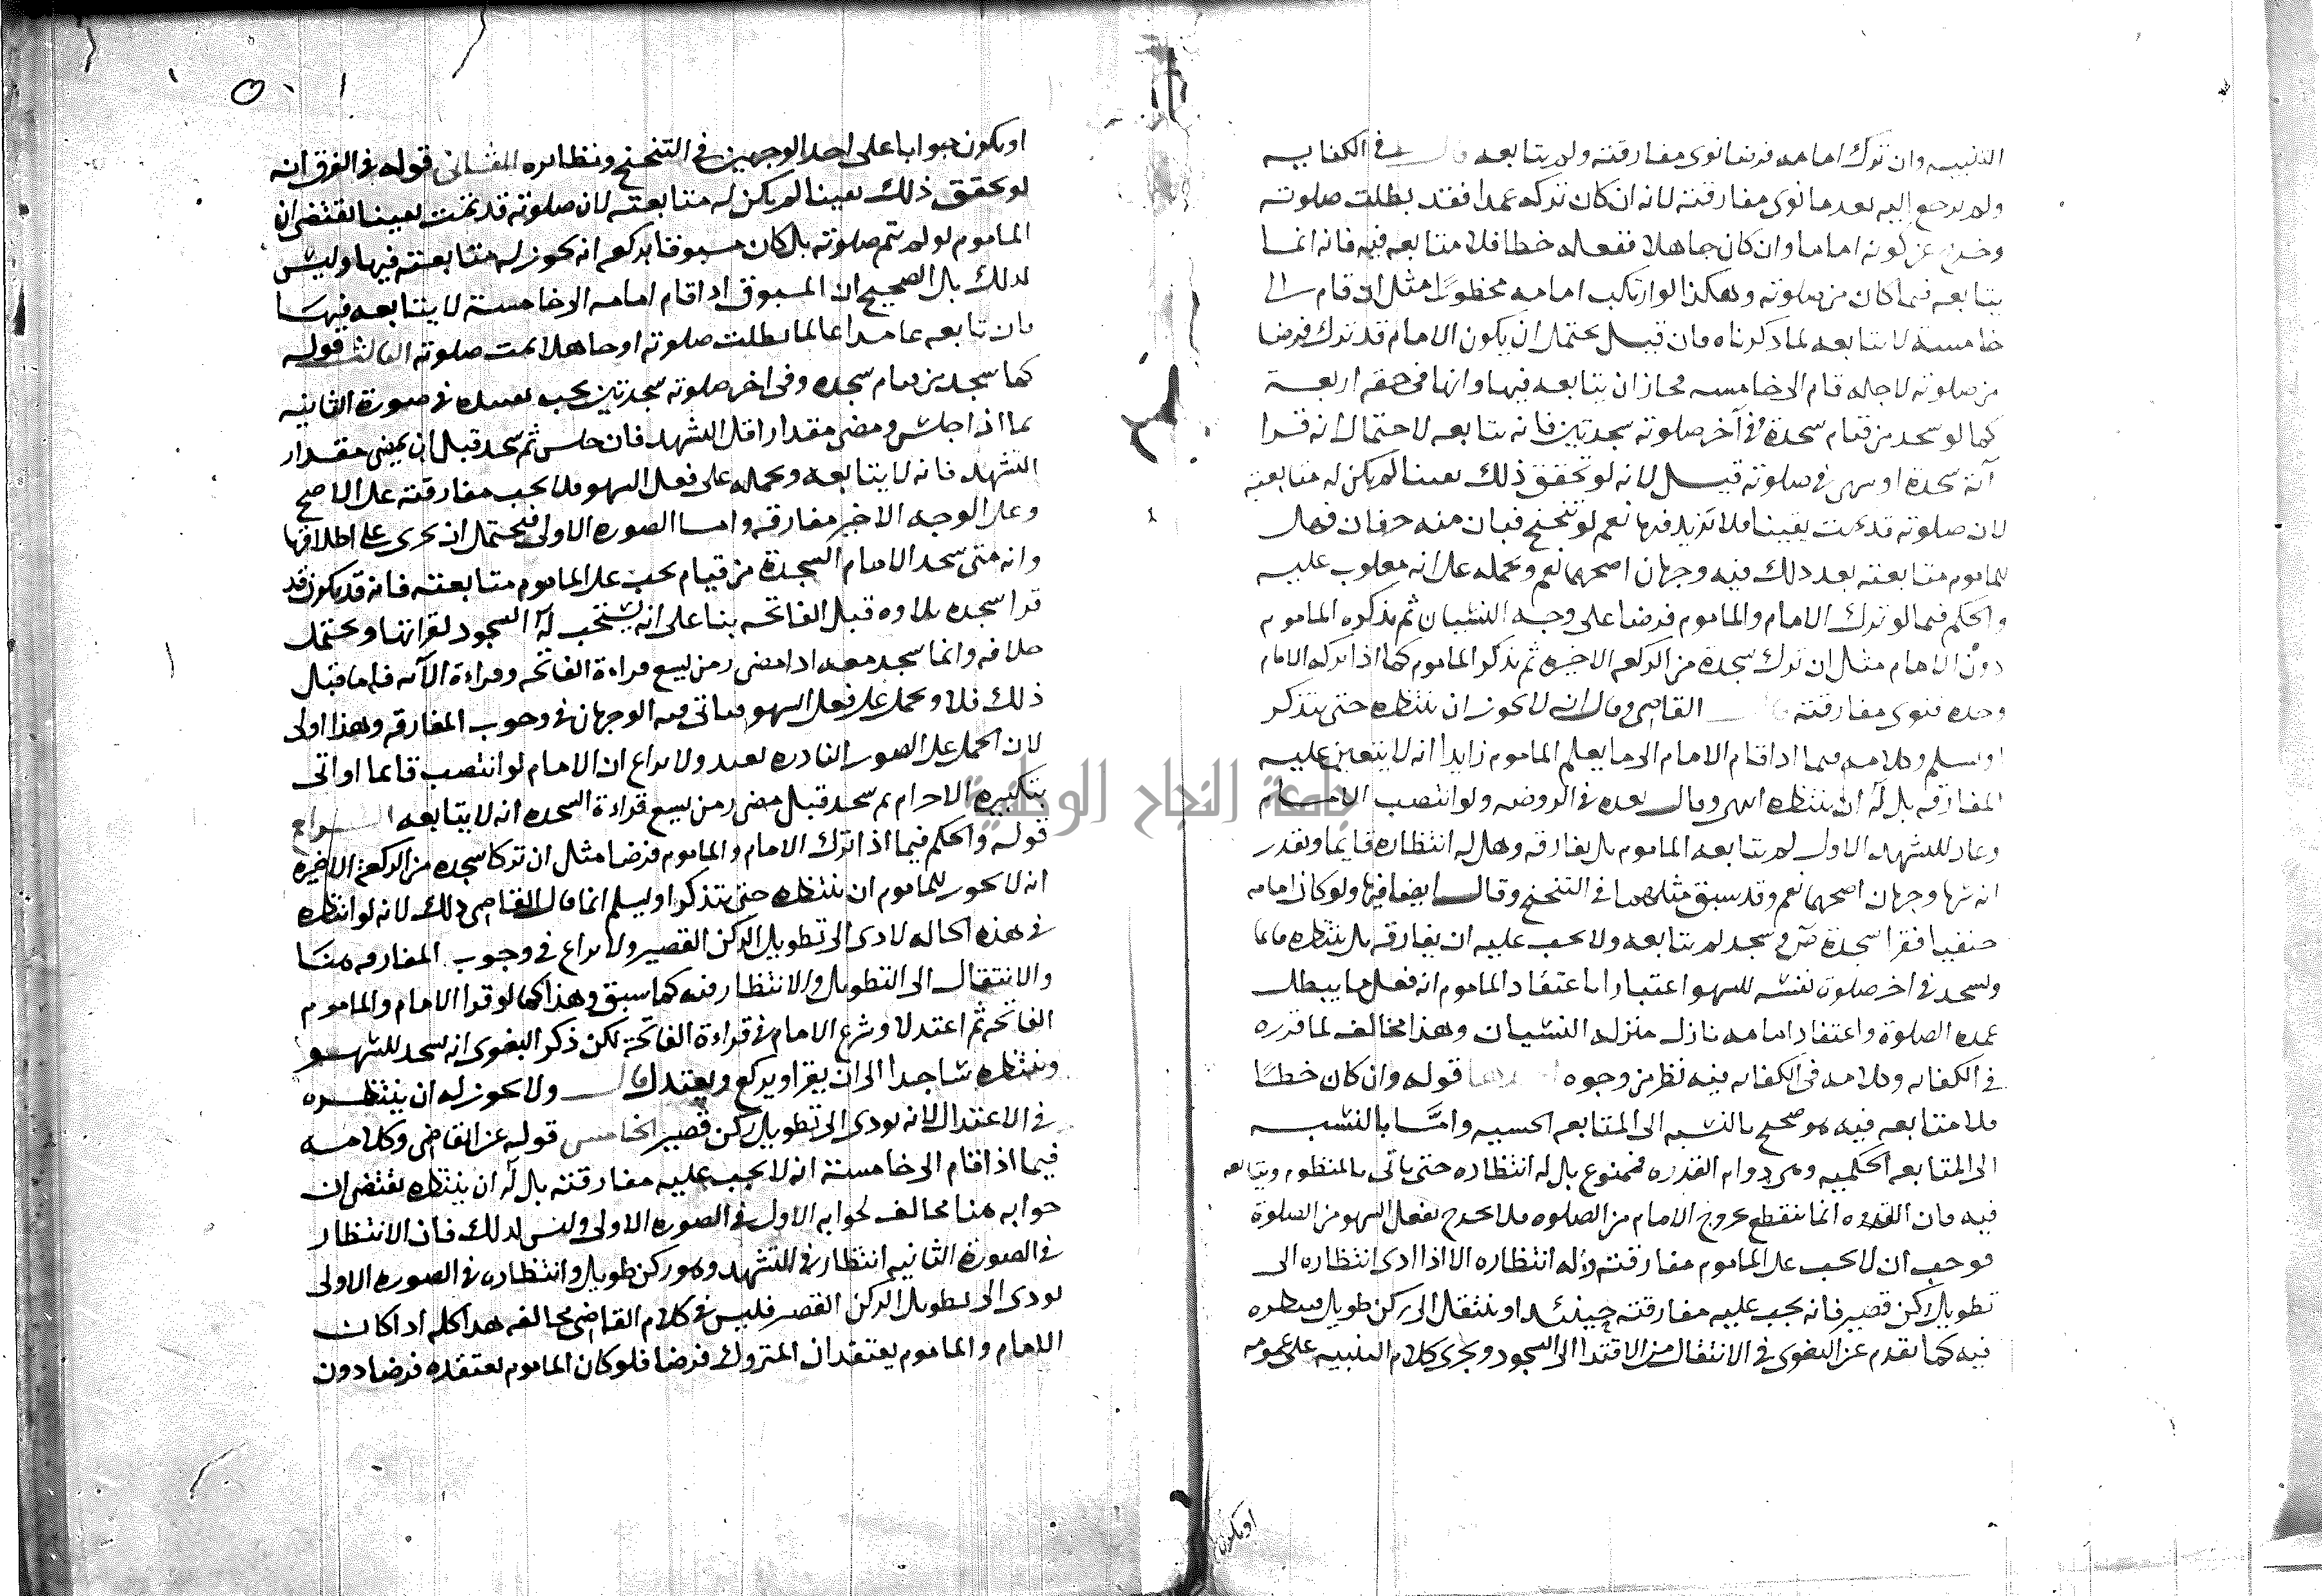 التنبيه وان ترك امامه فرضا نوى مفارقته ولم يتابعه قال في الكفايه
ولم يرجع اليه بعد ما نوى مفارقته لانه ان كان تركه عمدا فقد بطلت صلوته
وخرج عن كونه اماما وان كان جاهلا ففعله خطا فلا متابعه فيه فانه انما
يتابعه فيما كان من صلوته وهكذا لو ارتكب امامه محظورا مثل ان قام الى
خامسة لا يتابعه لما ذكرناه فان قيل يحتمل ان يكون الامام قد ترك فرضا
من صلوته لاجله قام الى خامسه فجاز ان يتابعه فيها وانها في حقه اربعة
كما لو سجد من قيام سجدة وفي آخر صلوته سجدتين فانه يتابعه لاحتمال انه قرا
آية سجدة او سهى في صلوته قيل لانه لو تحقق ذلك يقينا لم يكن له متابعته
لان صلوته قد تمت يقينا فلا تزيد فيها نعم لو تنحنح فبان منه حرفان فهل
للماموم متابعته بعد ذلك فيه وجهان اصحهما نعم ويحمله على انه مغلوب عليه
والحكم فيما لو ترك الامام والماموم فرضا على وجه النسيان ثم تذكره الماموم
دون الامام مثل ان ترك سجدة من الركعه الاخيره ثم تذكر الماموم كما اذا تركه الامام
وحده فنوى مفارقته قال القاضي وقال انه لا يجوز ان ينتظره حتى يتذكر
او يسلم وكلامه فيما اذا قام الامام الى ما يعلم الماموم زايدا انه لا يتعين عليه
المفارقه بل له ان ينتظره انتهى وقال بعده في الروضه ولو انتصب الامام
وعاد للتشهد الاول لم يتابعه الماموم بل يفارقه وهل له انتظاره قايما وتقدر
انه سها وجهان اصحهما نعم وقد سبق مثلهما في التنحنح وقال ايضا فيها ولو كان امامه
حنفيا فقرا سجدة ص وسجد لم يتابعه ولا يجب عليه ان يفارقه بل ينتظره قايما
ويسجد في اخر صلوة نفسه للسهو اعتبارا باعتقاد الماموم انه فعل ما يبطل
عمده الصلوة واعتقاد امامه نازل منزلة النسيان وهذا مخالف لما قرره
في الكفايه وكلامه في الكفايه فيه نظر من وجوه احدها قوله وان كان خطا
فلا متابعه فيه هو صحيح بالنسبه الى المتابعه الحسيه واما بالنسبه
الى المتابعه الحكميه وهي دوام القدره فممنوع بل له انتظاره حتى ياتي بالمنظوم ويتابعه
فيه فان القدوه انما تنقطع بخروج الامام من الصلوه فلا يخرج بفعل السهو من الصلوة
فوجب ان لا يجب على الماموم مفارقته وله انتظاره الا اذا ادى انتظاره الى
تطويل ركن قصير فانه يجب عليه مفارقته حينئد او ينتقل الى ركن طويل ينتظره
فيه كما تقدم عن البغوى في الانتقال من الاقتدا الى السجود ويجرى كلام التنبيه على عمومه
او يكون
١٠٥
او يكون جوابا على احد الوجهين في التنحنح ونظايره الثاني قوله في الفرق انه
لو تحقق ذلك يقينا لم يكن له متابعته لان صلوته قد تمت يقينا يقتضى ان
الماموم لو لم تتم صلوته بل كان مسبوقا بركعه انه يجوز له متابعته فيها وليس
كذلك بل الصحيح ان المسبوق اذا قام امامه الى خامسة لا يتابعه فيها
فان تابعه عامدا عالما بطلت صلوته او جاهلا تمت صلوته الثالث قوله
كما سجد من قيام سجده وفي اخر صلوته سجدتين يجب تقييده في صورة الثانيه
بما اذا جلس ومضى مقدار اقل التشهد فان جلس ثم سجد قبل ان يمضي مقدار
التشهد فانه لا يتابعه ويحمله على فعل السهو فلا يجب مفارقته على الاصح
وعلى الوجه الاخير مفارقه واما الصوره الاولى فيحتمل ان تجرى على اطلاقها
وانه متى سجد الامام السجدة من قيام يجب على الماموم متابعته فانه قد يكون قد
قرا سجده تلاوه قبل الفاتحه بنا على انه يستحب له السجود لقراتها ويحتمل
خلافه وانما سجد معه اذا مضى زمن يسع قراءة الفاتحه وقراءة الآيه فاما قبل
ذلك فلا ويحمل على فعل السهو فياتي فيه الوجهان في وجوب المفارقه وهذا اولى
لان الحمل على الصور النادره بعيد ولا نزاع ان الامام لو انتصب قايما او اتى
بتكبيره الاحرام ثم سجد قبل مضى زمن يسع قراءة السجده انه لا يتابعه الرابع
قوله والحكم فيما اذا ترك الامام والماموم فرضا مثل ان تركا سجده من الركعة الاخيره
انه لا يجوز للماموم ان ينتظره حتى يتذكر او يسلم انما قال القاضي ذلك لانه لو انتظره
في هذه الحاله لادى الى تطويل الركن القصير ولا نزاع في وجوب المفارقه هنا
والانتقال الى التطويل والانتظار فيه كما سبق وهذا كما لو قرا الامام والماموم
الفاتحه ثم اعتدلا وشرع الامام في قراءة الفاتحة لكن ذكر البغوى انه يسجد للسهو
وينتظره ساجدا الى ان يقرا ويركع ويعتدل قال ولا يجوز له ان ينتظره
في الاعتدال لانه يودى الى تطويل ركن قصير الخامس قوله عن القاضي وكلامه
فيما اذا قام الى خامسة انه لا يجب عليه مفارقته بل له ان ينتظره يقتضى ان
جوابه هنا مخالف لجوابه الاول في الصوره الاولى وليس كذلك فان الانتظار
في الصورة الثانيه انتظار في التشهد وهو ركن طويل وانتظاره في الصوره الاولى
يودى الى تطويل الركن القصير فليس في كلام القاضي مخالفه هذا كله اذا كان
الامام والماموم يعتقدان المتروك فرضا فلو كان الماموم يعتقده فرضا دون
جامعة النجاح الوطنية